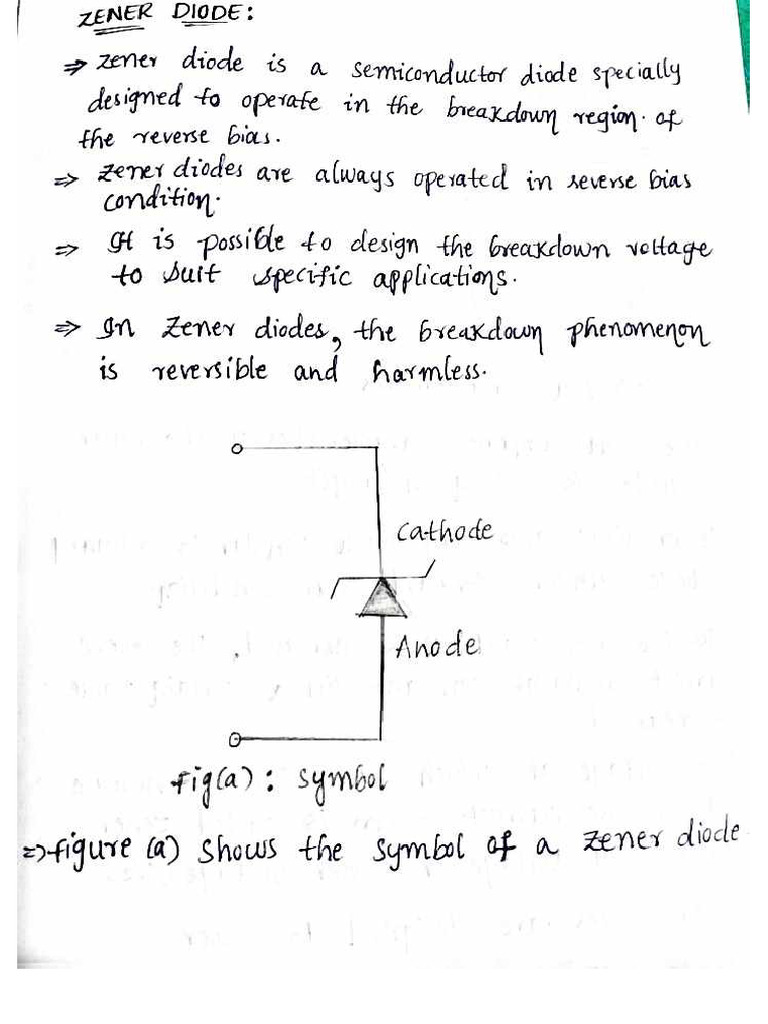 ZENER DIODE:
⇒ Zener diode is a semiconductor diode specially
designed to operate in the breakdown region of
the reverse bias.
⇒ Zener diodes are always operated in reverse bias
condition.
⇒ It is possible to design the breakdown voltage
to suit specific applications.
⇒ In Zener diodes, the breakdown phenomenon
is reversible and harmless.
Cathode
Anode
fig(a): symbol
⇒ figure (a) shows the symbol of a zener diode